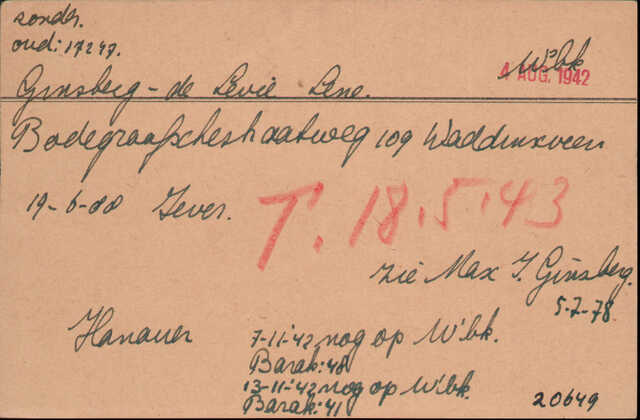 zonder.
oud: 17249.
W'bk
4 AUG. 1942
Ginsberg - de Levie Lene.
Bodegraafschestraatweg 109 Waddinxveen
19-6-88 Jever.
T. 18.5.43
zie Max J. Ginsberg.
5-7-78.
Hanauer
7-11-'42 nog op W'bk.
Barak: 48
13-11-'42 nog op W'bk.
Barak: 41
20649